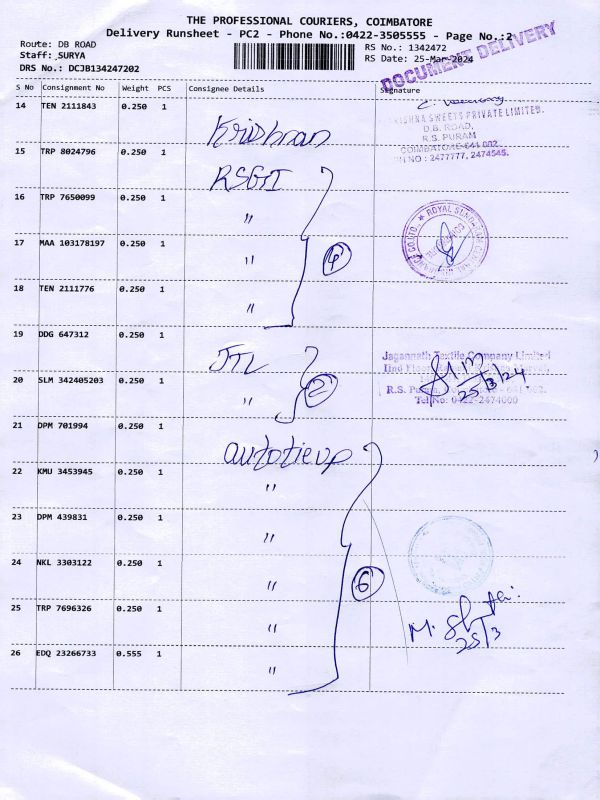 THE PROFESSIONAL COURIERS, COIMBATORE
Delivery Runsheet - PC2 - Phone No.:0422-3505555 - Page No.:2
Route: DB ROAD
Staff: SURYA
DRS No.: DCJB134247202
RS No.: 1342472
RS Date: 25-Mar-2024
DOCUMENT DELIVERY
S No Consignment No Weight PCS Consignee Details Signature
14 TEN 2111843 0.250 1 Krishnan
KRISHNA SWEETS PRIVATE LIMITED.
D.B. ROAD,
R.S. PURAM
COIMBATORE-641 002
PH NO : 2477777, 2474545.
15 TRP 8024796 0.250 1 RSGI
16 TRP 7650099 0.250 1 "
17 MAA 103178197 0.250 1 "
4
18 TEN 2111776 0.250 1 "
19 DDG 647312 0.250 1 JTL
Jagannath Textile Company Limited
IInd Floor
R.S. Puram,
Tel No: 0422-2474000
25/3/24
20 SLM 342405203 0.250 1 "
2
21 DPM 701994 0.250 1 autotieup
22 KMU 3453945 0.250 1 "
23 DPM 439831 0.250 1 "
24 NKL 3303122 0.250 1 "
6
25 TRP 7696326 0.250 1 "
M.
25/3
26 EDQ 23266733 0.555 1 "